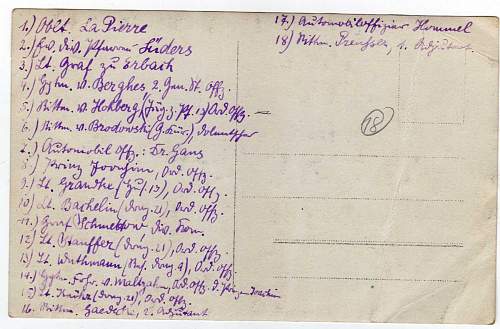 1.) Oblt. La Pierre
2.) Ev. Div. Pfarrer Lüders
3.) Lt. Graf zu Erbach
4.) v. Berghes, 2. Gen. St. Offz.
5.) Rittm. v. Hokberg (Jäg. z. Pf. 12) Ord. Offz.
6.) Rittm. v. Brodowski (G. Kür.), Dolmetscher
7.) Automobil Offz.: Fr. Gans
8.) Prinz Joachim, Ord. Offz.
9.) Lt. Grandke (Hus. 13), Ord. Offz.
10.) Lt. Bachelin (Drag. 21), Ord. Offz.
11.) Graf Schmettow Div. Kom.
12.) Lt. Stauffer (Drag. 21), Ord. Offz.
13.) Lt. Wuthmann ( Drag. 9), Ord. Offz.
14.) Frhr. v. Maltzahn, Ord. Offz. d. Prinzen Joachim
15.) Lt. (Drag. 21), Ord. Offz.
16. Rittm. Gaedecke, 2. Adjutant
17.) Automobiloffizier Hommel
18) Rittm. 1. Adjutant.
18